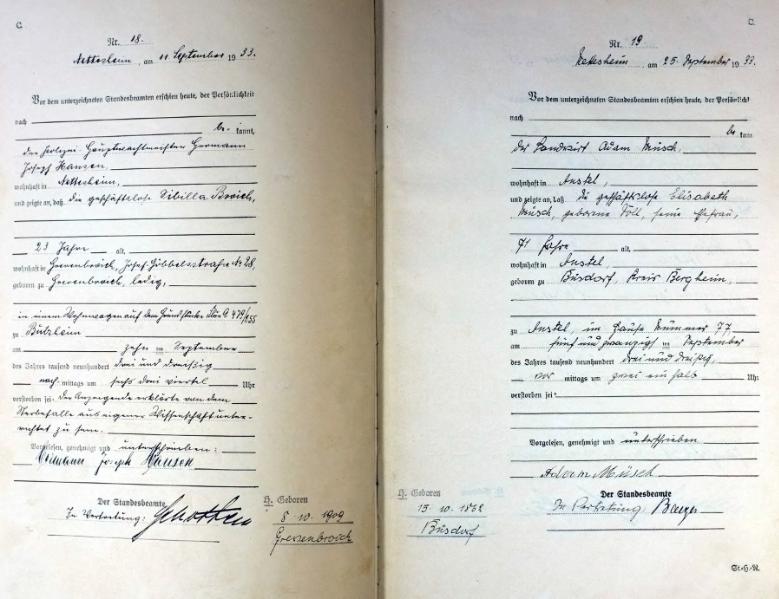 C.
Nr. 18.
Nettesheim, am 11. September 1933.
Vor dem unterzeichneten Standesbeamten erschien heute, der Persönlichkeit
nach
be kannt,
der Polizei Hauptwachtmeister Hermann
Josef Hansen,
wohnhaft in Nettesheim,
und zeigte an, daß die geschäftslose Sibilla Broich,
23 Jahre alt,
wohnhaft in Grevenbroich, Josef Göbbelsstrasse Nr 28,
geboren zu Grevenbroich, ledig,
in einem Wohnwagen auf dem Grundstücke Flur A 479/155
zu Butzheim
am zehn ten September
des Jahres tausend neunhundert drei und dreissig
nach mittags um sechs drei viertel Uhr
verstorben sei. Der Anzeigende erklärte von dem
Sterbefalle aus eigener Wissenschaft unter-
richtet zu sein.
Vorgelesen, genehmigt und unterschrieben:
Hermann Joseph Hansen
Der Standesbeamte
In Vertretung:
H. Geboren
8. 10. 1909
Grevenbroich
C.
Nr. 19
Nettesheim, am 25. September 1933.
Vor dem unterzeichneten Standesbeamten erschien heute, der Persönlichkeit
nach
be kannt,
der Landwirt Adam Müsch,
wohnhaft in Anstel,
und zeigte an, daß die geschäftslose Elisabeth
Müsch, geborene Voll, seine Ehefrau,
71 Jahre alt,
wohnhaft in Anstel,
geboren zu Büsdorf, Kreis Bergheim,
zu Anstel, im Hause Nummer 77
am fünf und zwanzigs ten September
des Jahres tausend neunhundert drei und dreißig
vor mittags um zwei ein halb Uhr
verstorben sei.
Vorgelesen, genehmigt und unterschrieben
Adam Müsch
Der Standesbeamte
In Vertretung
H. Geboren
15. 10. 1862
Büsdorf
St.-H.-N.